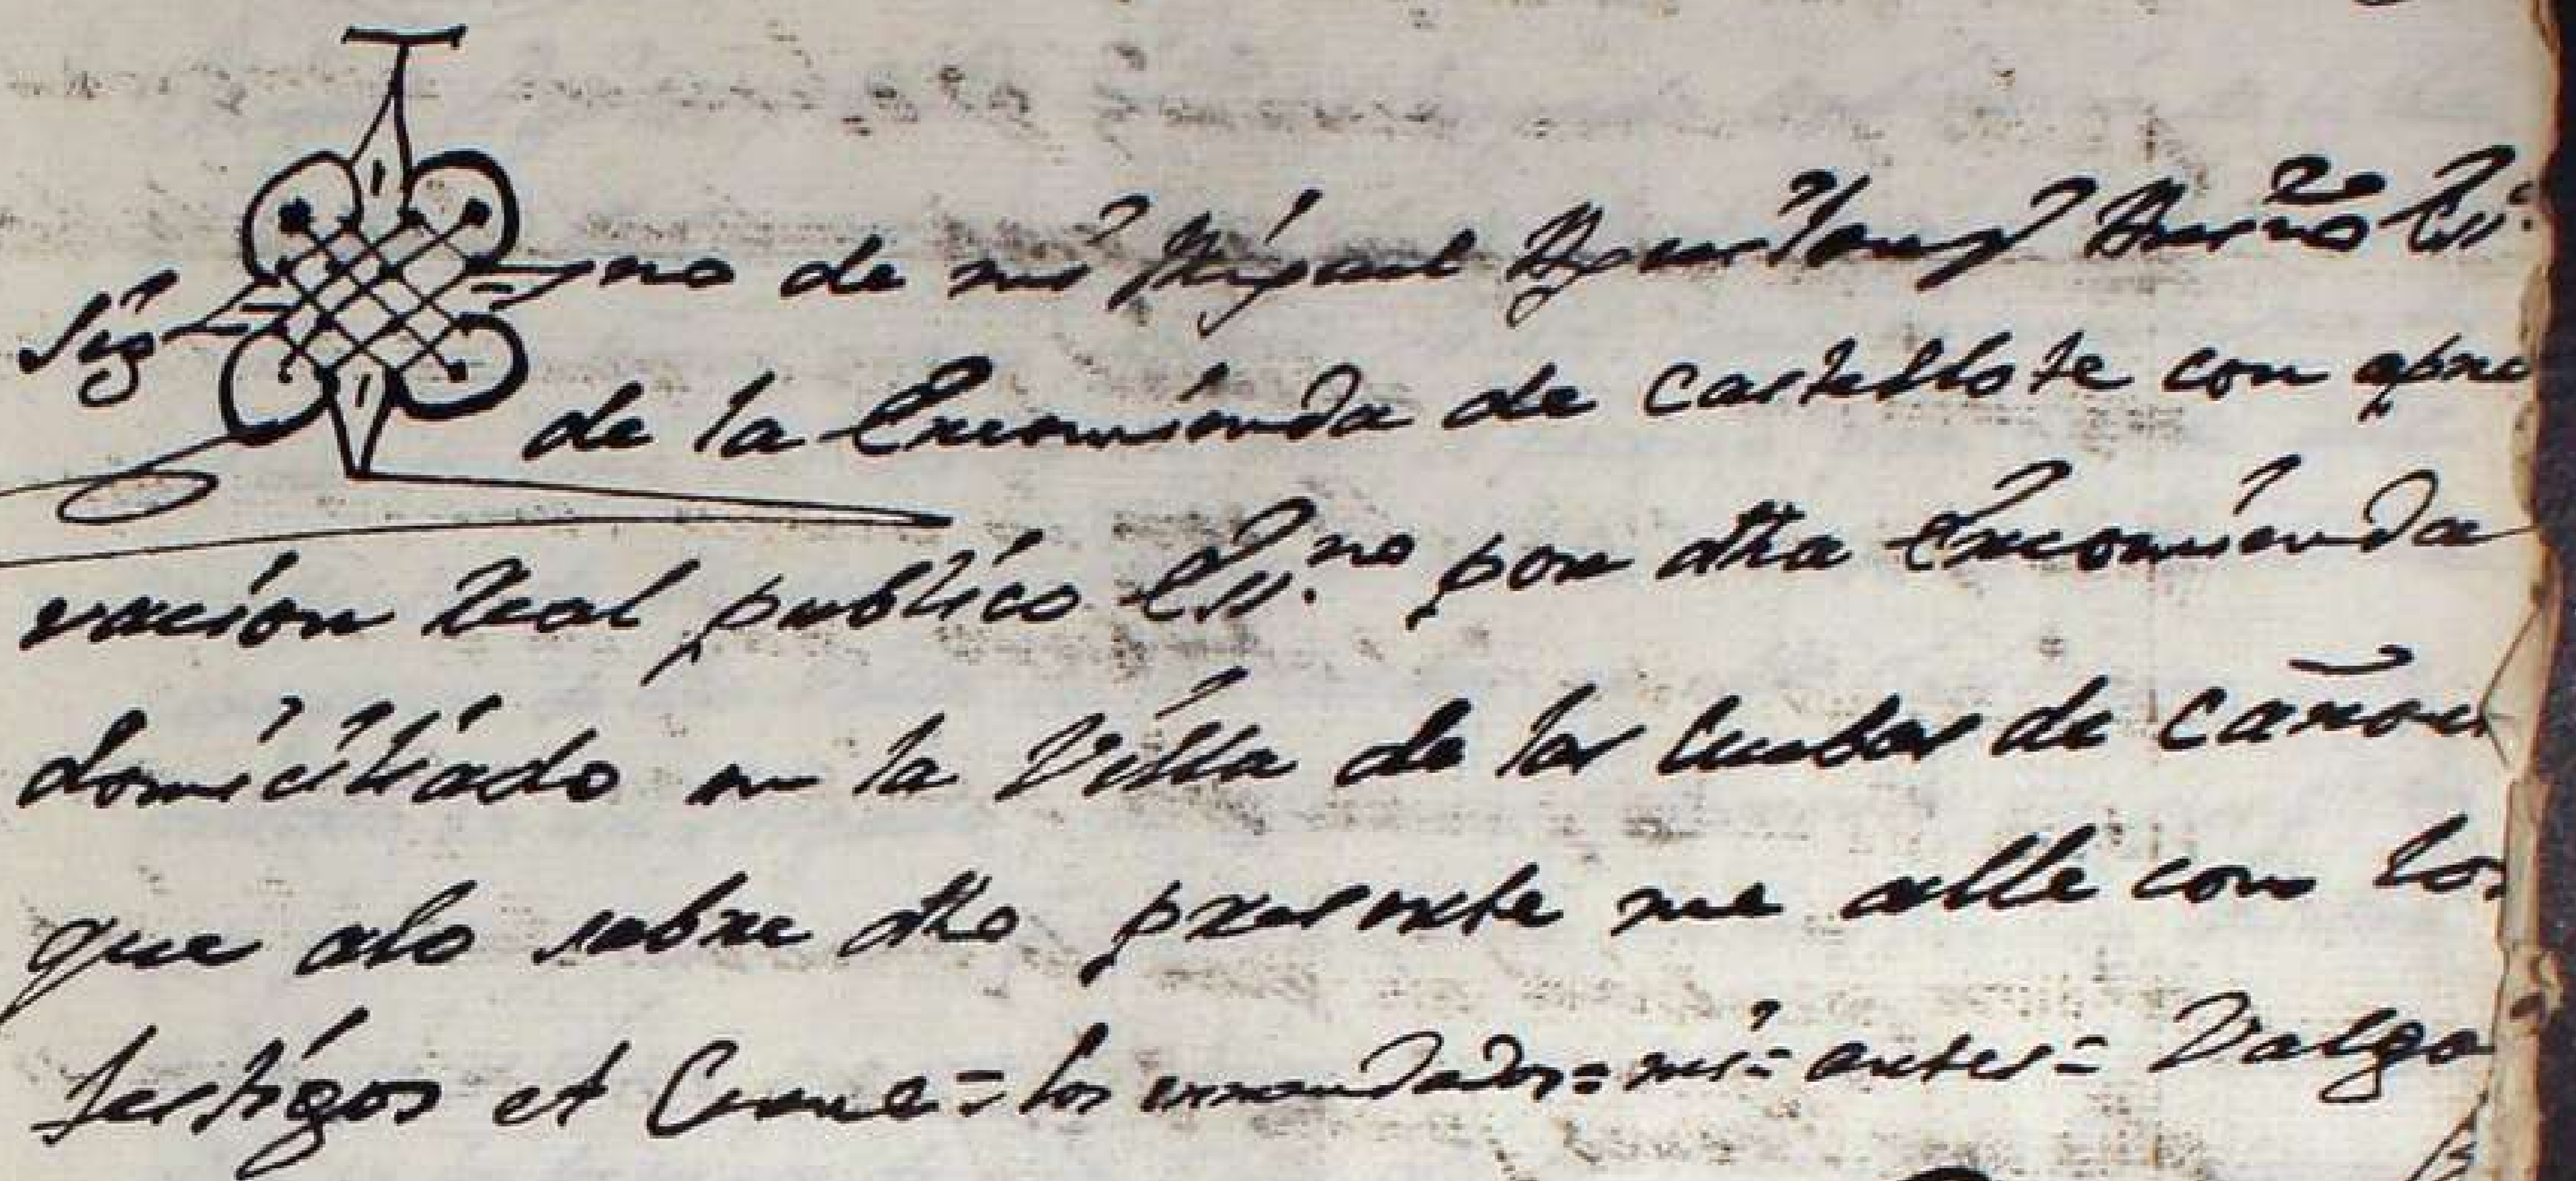 Sig-no de mi Miguel Ess.
de la Encomienda de Castellote con apro
vacion Real publico Ess.no por dha Encomienda
domiciliado en la Villa de las Cuebas de Cañar
que alo sobre dho presente me alle con los
testigos et Cerre = los enmendados = mi = antes = Valga